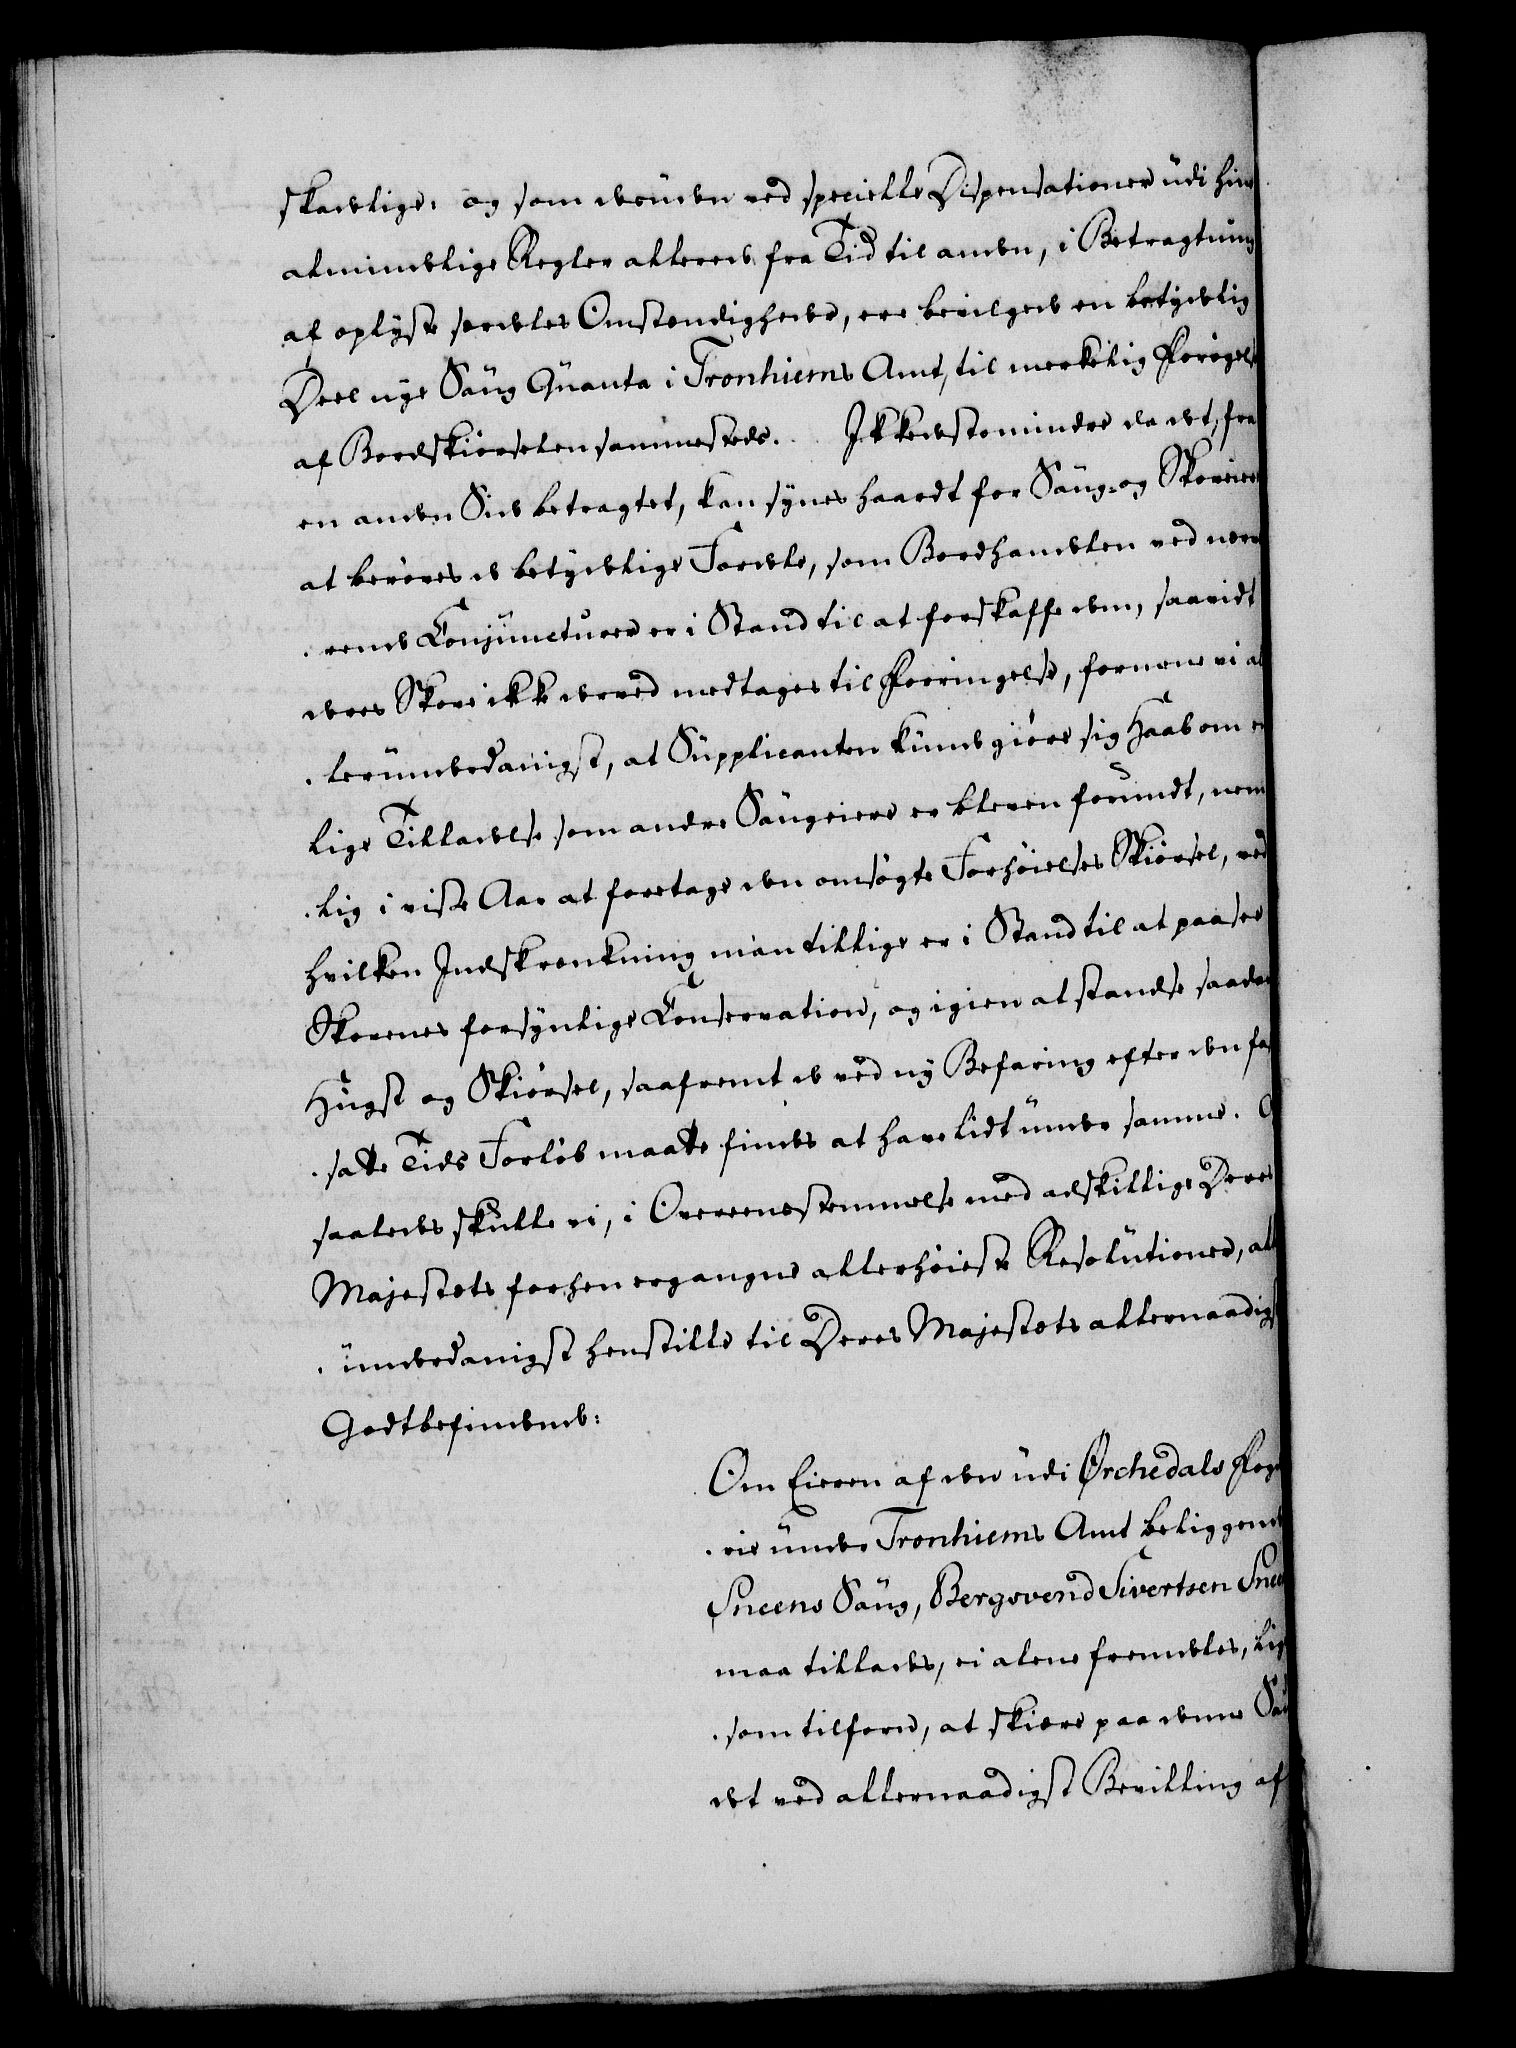 skadelige, og som desuden ved specielle Dispensationer udi hine
almindelige Regler allerede fra Tid til anden, i Betragtning
af oplyste særdeles Omstændigheder, ere bevilgede en betydelig
Deel nye Saug Quanta i Tronhiems Amt, til merkelig Forøgelse
af Bordskiørselen sammesteds. Ikkedestomindre da det, fra
en anden Side betragtet, kan synes haardt for Saug- og Skoveiere
at berøves de betydelige Fordele, som Bordhandelen ved nærvæ
rende Conjuncturer er i Stand til at forskaffe dem, saavidt
deres Skove ikke derved medtages til Forringelse, formene vi al
lerunderdanigst, at Supplicanten kunde giøre sig Haab om
lige Tilladelse som andre Saugeiere er bleven forundt, nem
lig i visse Aar at foretage den omsøgte Forhøielses Skiørsel, ved
hvilken Indskrænkning man tillige er i Stand til at paasee
Skovenes forsynlige Conservation, og igien at standse saadan
Hugst og Skiørsel, saafremt de ved ny Befaring efter den fast
satte Tids Forløb maatte findes at have lidt under samme. Og
saaledes skulle vi, i Overeensstemmelse med adskillige Deres
Majestæts forhen ergangne allerhøieste Resolutioner, aller
underdanigst henstille til Deres Majestæts allernaadigste
Godtbefindende:
Om Eieren af den udi Ørchedals Fog
rie under Tronhiems Amt beliggende
Sneens Saug, Bergsvend Sivertsen Sneen
maa tillades, ei alene fremdeles, lige
som tilforn, at skiære paa denne Saug
det ved allernaadigst Bevilling af